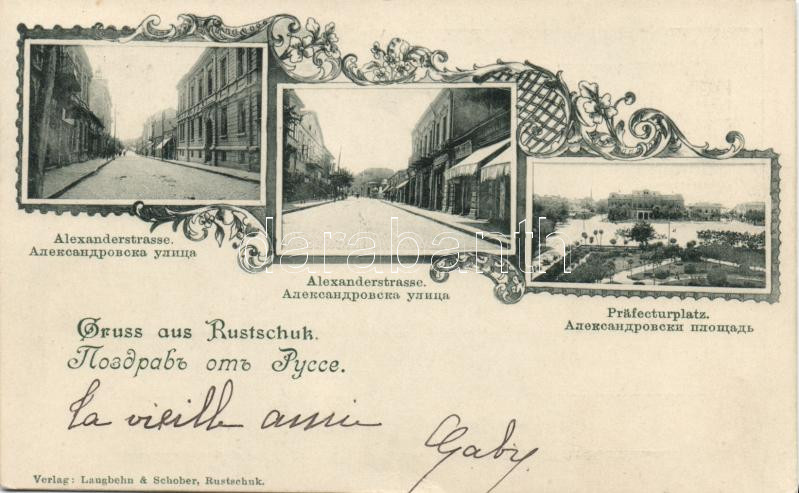 Alexanderstrasse.
Александровска улица
Alexanderstrasse.
Александровска улица
Präfecturplatz.
Александровски площадь
Gruss aus Rustschuk.
Поздравъ отъ Руссе.
La vieille amie
Gaby.
Verlag: Langbehn & Schober, Rustschuk.
darabanth